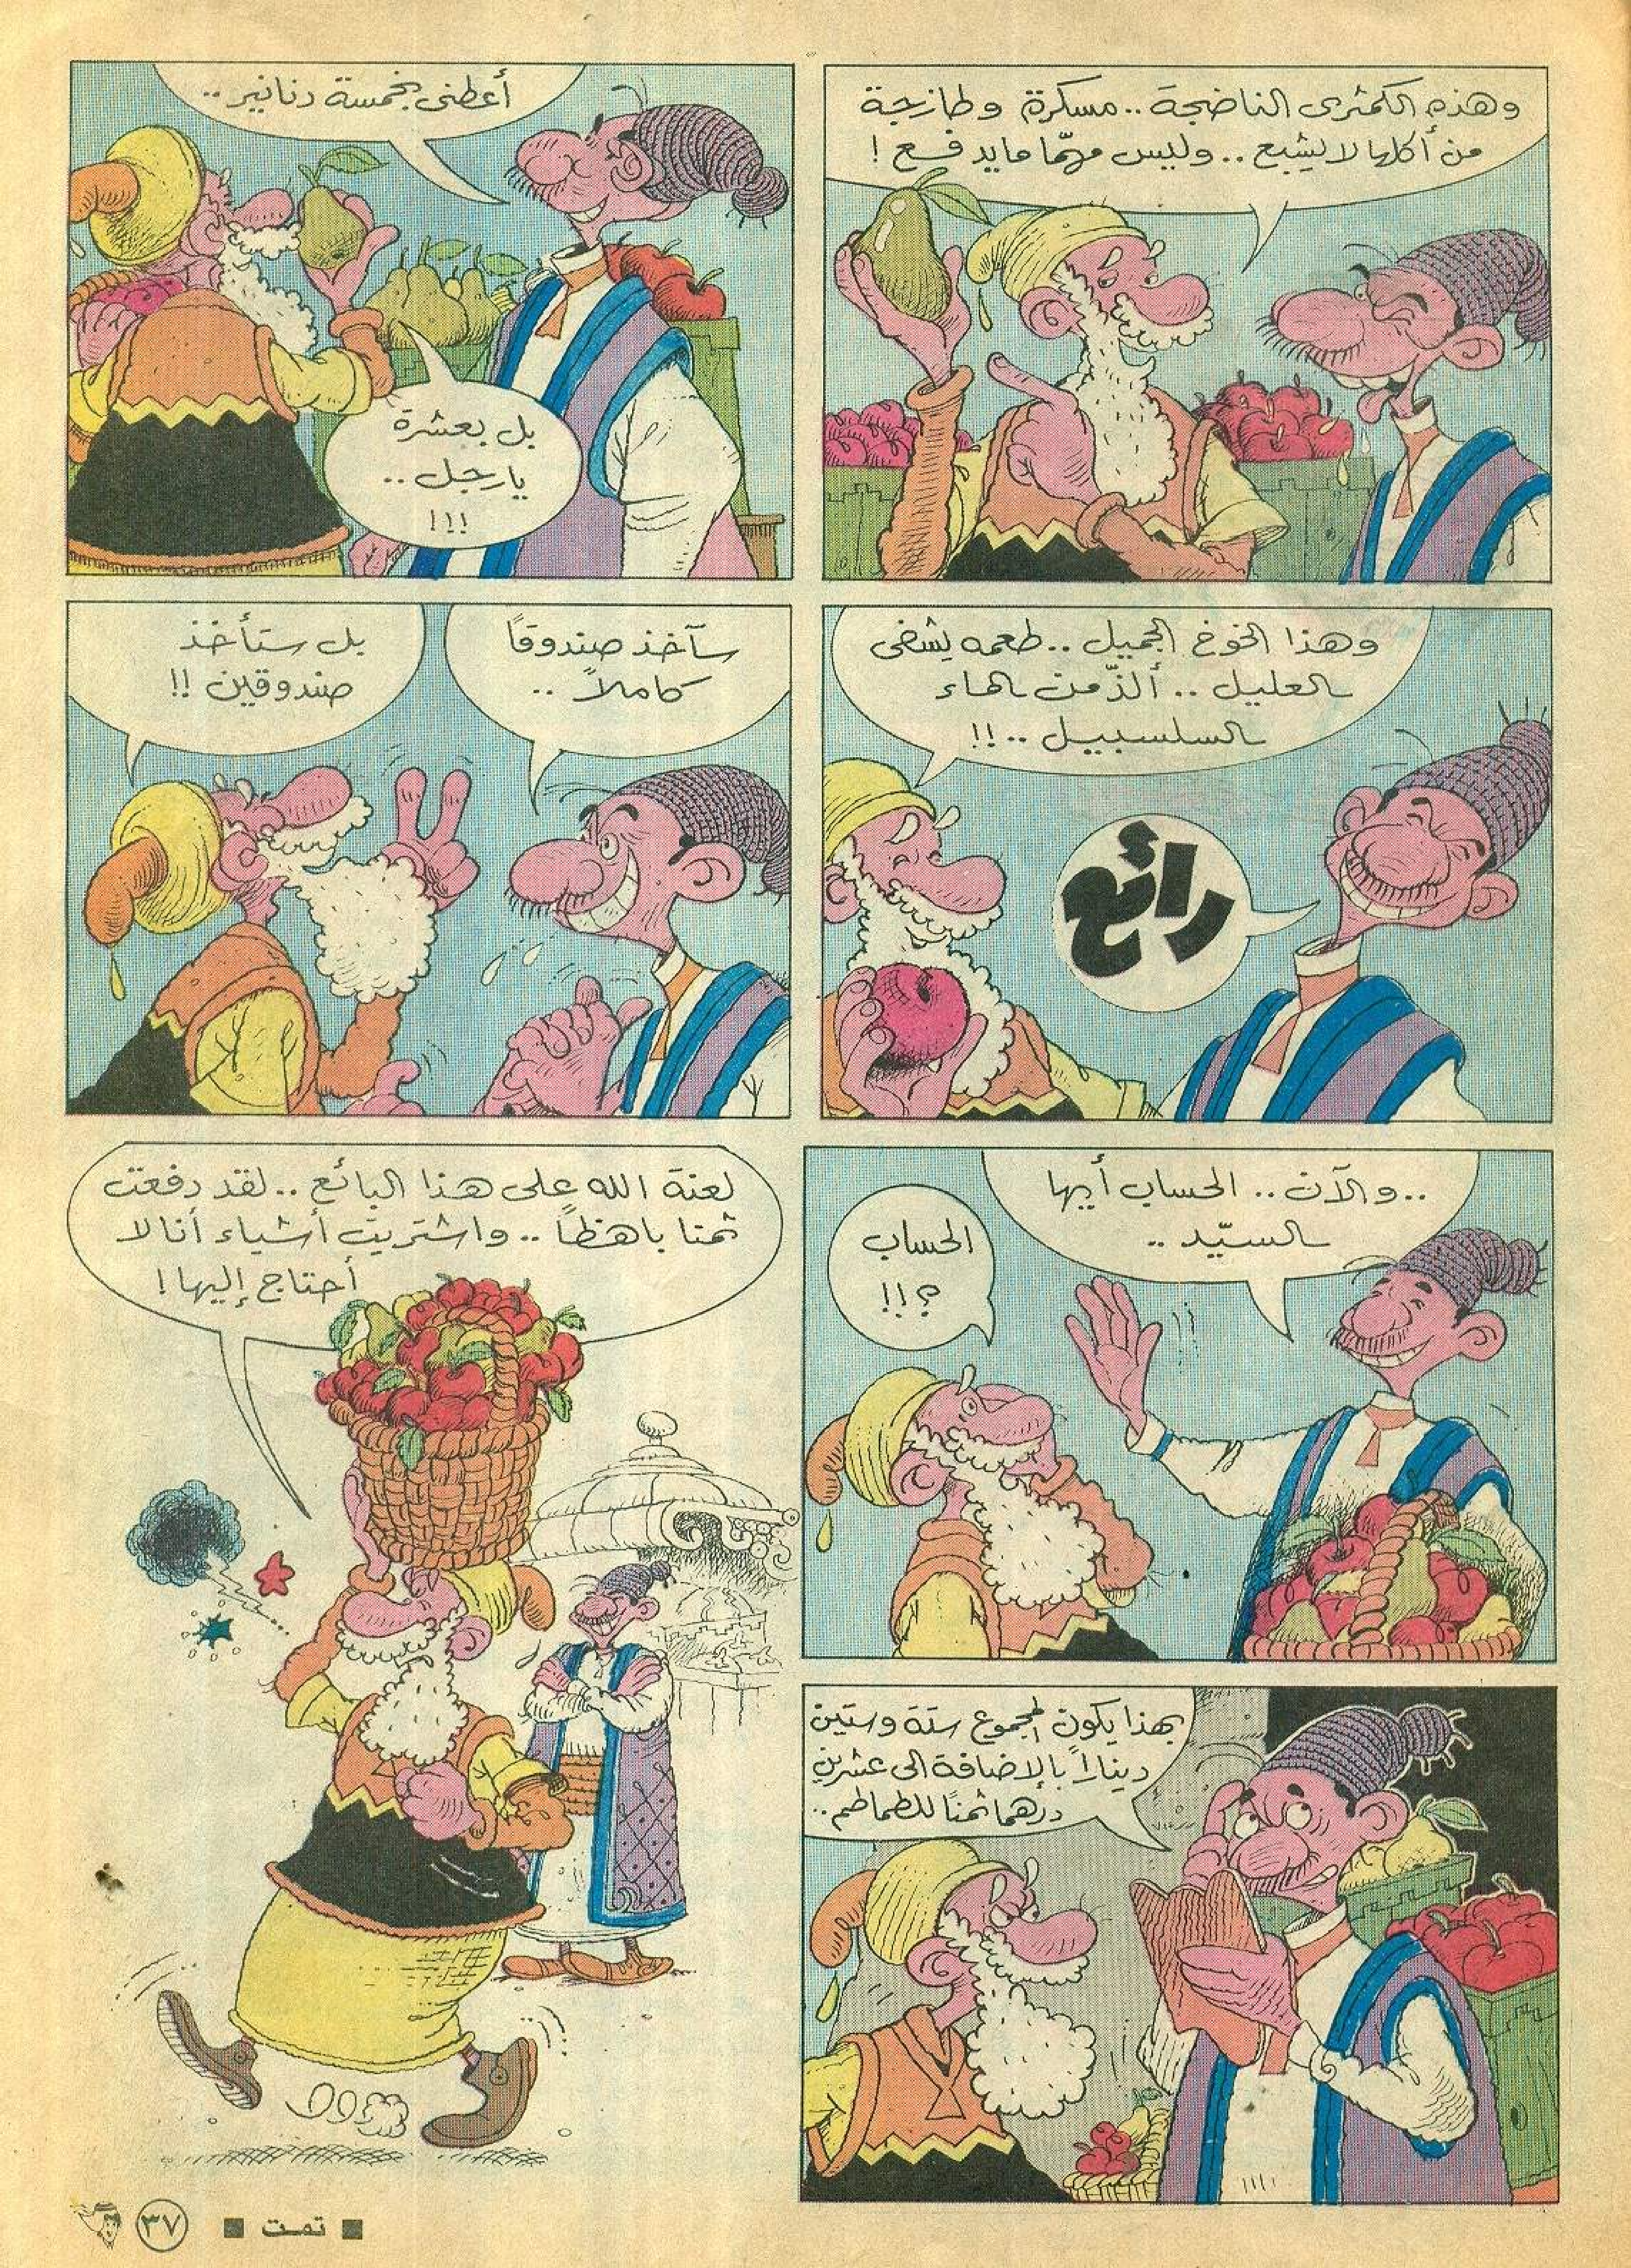 وهذه الكمثرى الناضجة .. مسكرة وطازجة
من أكلها لا يشبع .. وليس مهمّا ما يدفع !
أعطني بخمسة دنانير ..
بل بعشرة
يا رجل ..
!!!
وهذا الخوخ الجميل .. طعمه يشفى
العليل .. ألذّ من الماء
السلسبيل .. !!
رائع
سآخذ صندوقاً
كاملاً ..
بل ستأخذ
صندوقين !!
.. والآن .. الحساب أيها
السيّد ..
الحساب
؟!!
بهذا يكون المجموع ستة وستين
ديناراً بالإضافة الى عشرين
درهما ثمناً للطماطم ..
لعنة الله على هذا البائع .. لقد دفعت
ثمنا باهظاً .. واشتريت أشياء أنا لا
أحتاج إليها !
■ تمت ■
٣٧